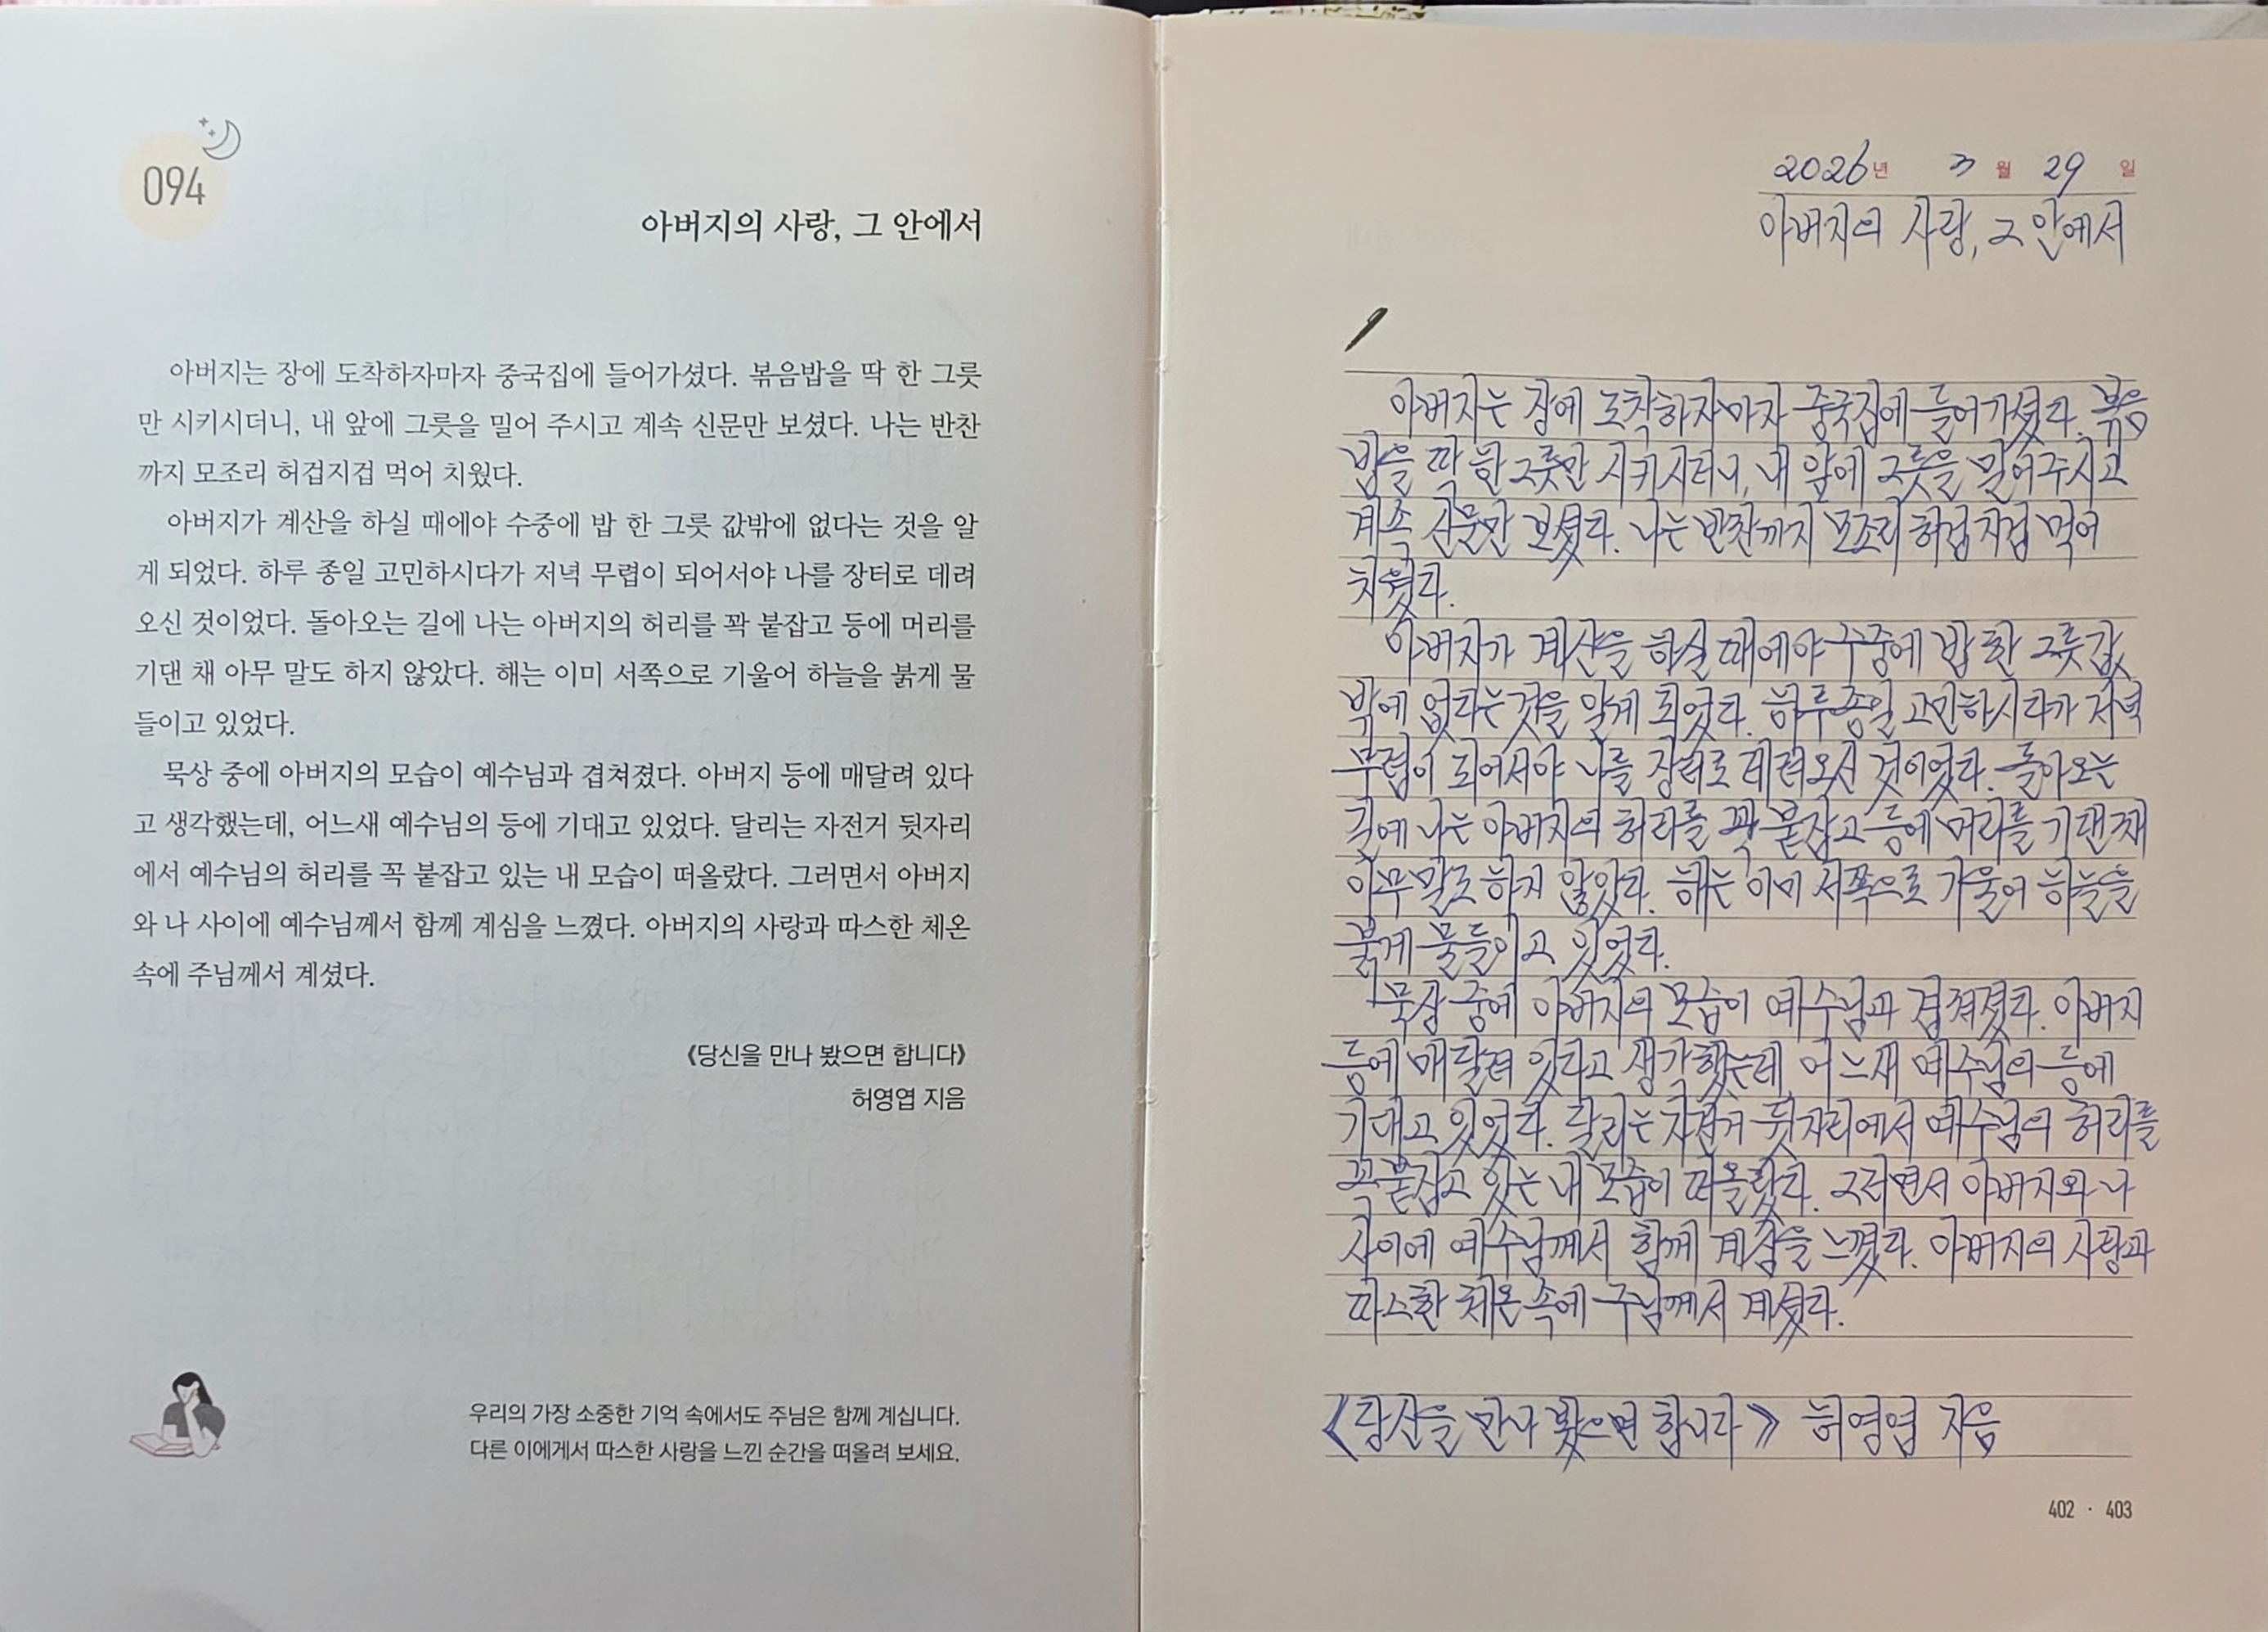 094
아버지의 사랑, 그 안에서
아버지는 장에 도착하자마자 중국집에 들어가셨다. 볶음밥을 딱 한 그릇
만 시키시더니, 내 앞에 그릇을 밀어 주시고 계속 신문만 보셨다. 나는 반찬
까지 모조리 허겁지겁 먹어 치웠다.
아버지가 계산을 하실 때에야 수중에 밥 한 그릇 값밖에 없다는 것을 알
게 되었다. 하루 종일 고민하시다가 저녁 무렵이 되어서야 나를 장터로 데려
오신 것이었다. 돌아오는 길에 나는 아버지의 허리를 꽉 붙잡고 등에 머리를
기댄 채 아무 말도 하지 않았다. 해는 이미 서쪽으로 기울어 하늘을 붉게 물
들이고 있었다.
묵상 중에 아버지의 모습이 예수님과 겹쳐졌다. 아버지 등에 매달려 있다
고 생각했는데, 어느새 예수님의 등에 기대고 있었다. 달리는 자전거 뒷자리
에서 예수님의 허리를 꼭 붙잡고 있는 내 모습이 떠올랐다. 그러면서 아버지
와 나 사이에 예수님께서 함께 계심을 느꼈다. 아버지의 사랑과 따스한 체온
속에 주님께서 계셨다.
《당신을 만나 봤으면 합니다》
허영엽 지음
우리의 가장 소중한 기억 속에서도 주님은 함께 계십니다.
다른 이에게서 따스한 사랑을 느낀 순간을 떠올려 보세요.
2026년 3월 29일
아버지의 사랑, 그 안에서
아버지는 장에 도착하자마자 중국집에 들어가셨다. 볶음
밥을 딱 한 그릇만 시키시더니, 내 앞에 그릇을 밀어주시고
계속 신문만 보셨다. 나는 반찬까지 모조리 허겁지겁 먹어
치웠다.
아버지가 계산을 하실 때에야 수중에 밥 한 그릇 값
밖에 없다는 것을 알게 되었다. 하루종일 고민하시다가 저녁
무렵이 되어서야 나를 장터로 데려오신 것이었다. 돌아오는
길에 나는 아버지의 허리를 꽉 붙잡고 등에 머리를 기댄 채
아무 말도 하지 않았다. 해는 이미 서쪽으로 기울어 하늘을
붉게 물들이고 있었다.
묵상 중에 아버지의 모습이 예수님과 겹쳐졌다. 아버지
등에 매달려 있다고 생각했는데, 어느새 예수님의 등에
기대고 있었다. 달리는 자전거 뒷자리에서 예수님의 허리를
꼭 붙잡고 있는 내 모습이 떠올랐다. 그러면서 아버지와 나
사이에 예수님께서 함께 계심을 느꼈다. 아버지의 사랑과
따스한 체온 속에 주님께서 계셨다.
《당신을 만나 봤으면 합니다》 허영엽 지음
402 · 403